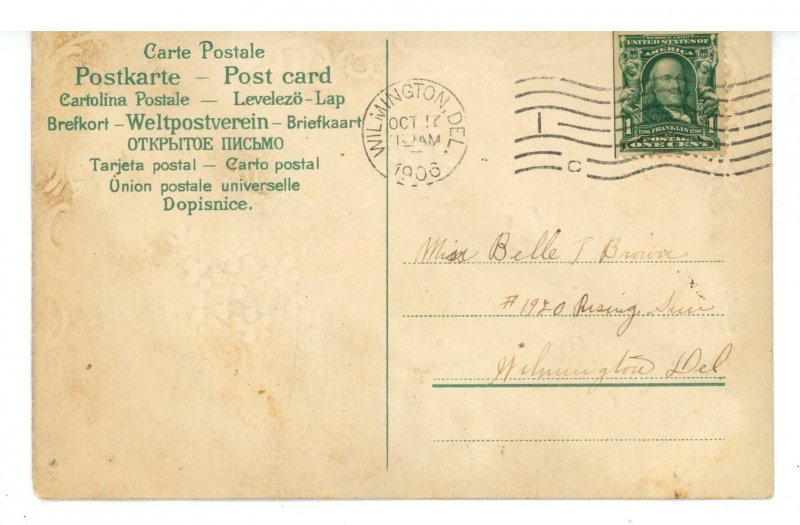 Carte Postale
Postkarte – Post card
Cartolina Postale — Levelező-Lap
Brefkort – Weltpostverein – Briefkaart
ОТКРЫТОЕ ПИСЬМО
Tarjeta postal – Carto postal
Union postale universelle
Dopisnice.
WILMINGTON, DEL.
OCT
AM
1906
1
C
SERIES 1902
UNITED STATES OF
AMERICA
1 FRANKLIN 1
POSTAGE
ONE CENT
Miss Belle T Brown
# 1920 Rising Sun
Wilmington Del